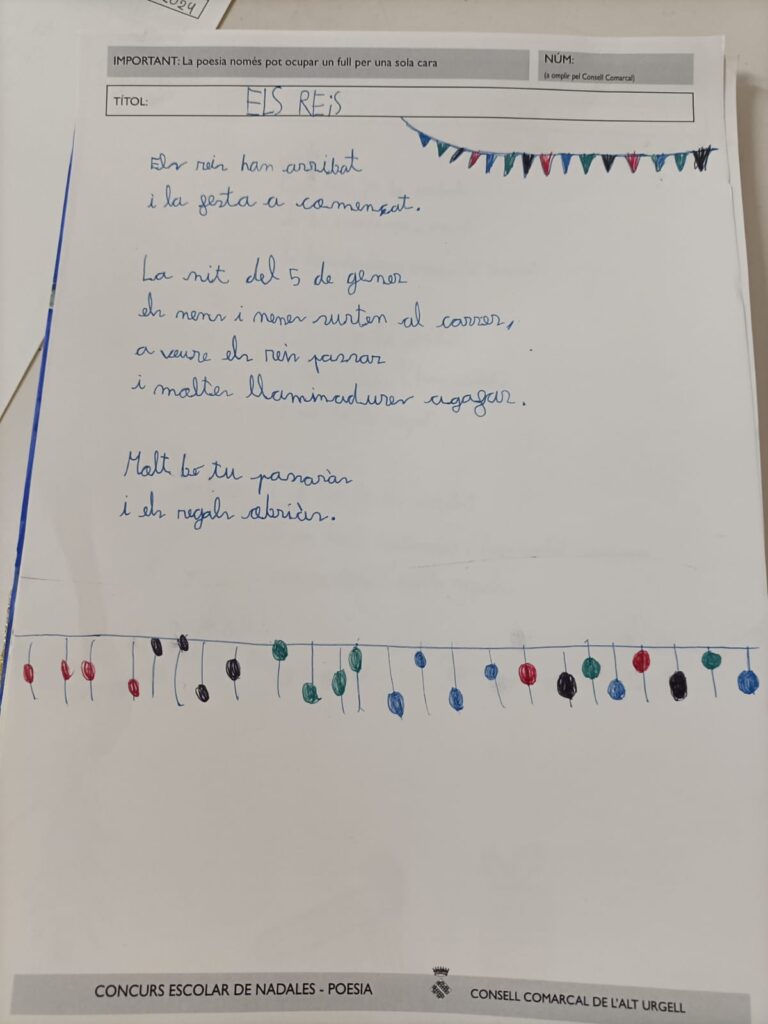 2024
IMPORTANT: La poesia només pot ocupar un full per una sola cara
NÚM:
(a omplir pel Consell Comarcal)
TÍTOL: ELS REiS
Els reis han arribat
i la festa a començat.
La nit del 5 de gener
els nens i nenes surten al carrer,
a veure els reis passar
i moltes llaminadures agafar.
Molt bé tu passaràs
i els regals obriràs.
CONCURS ESCOLAR DE NADALES - POESIA
CONSELL COMARCAL DE L'ALT URGELL